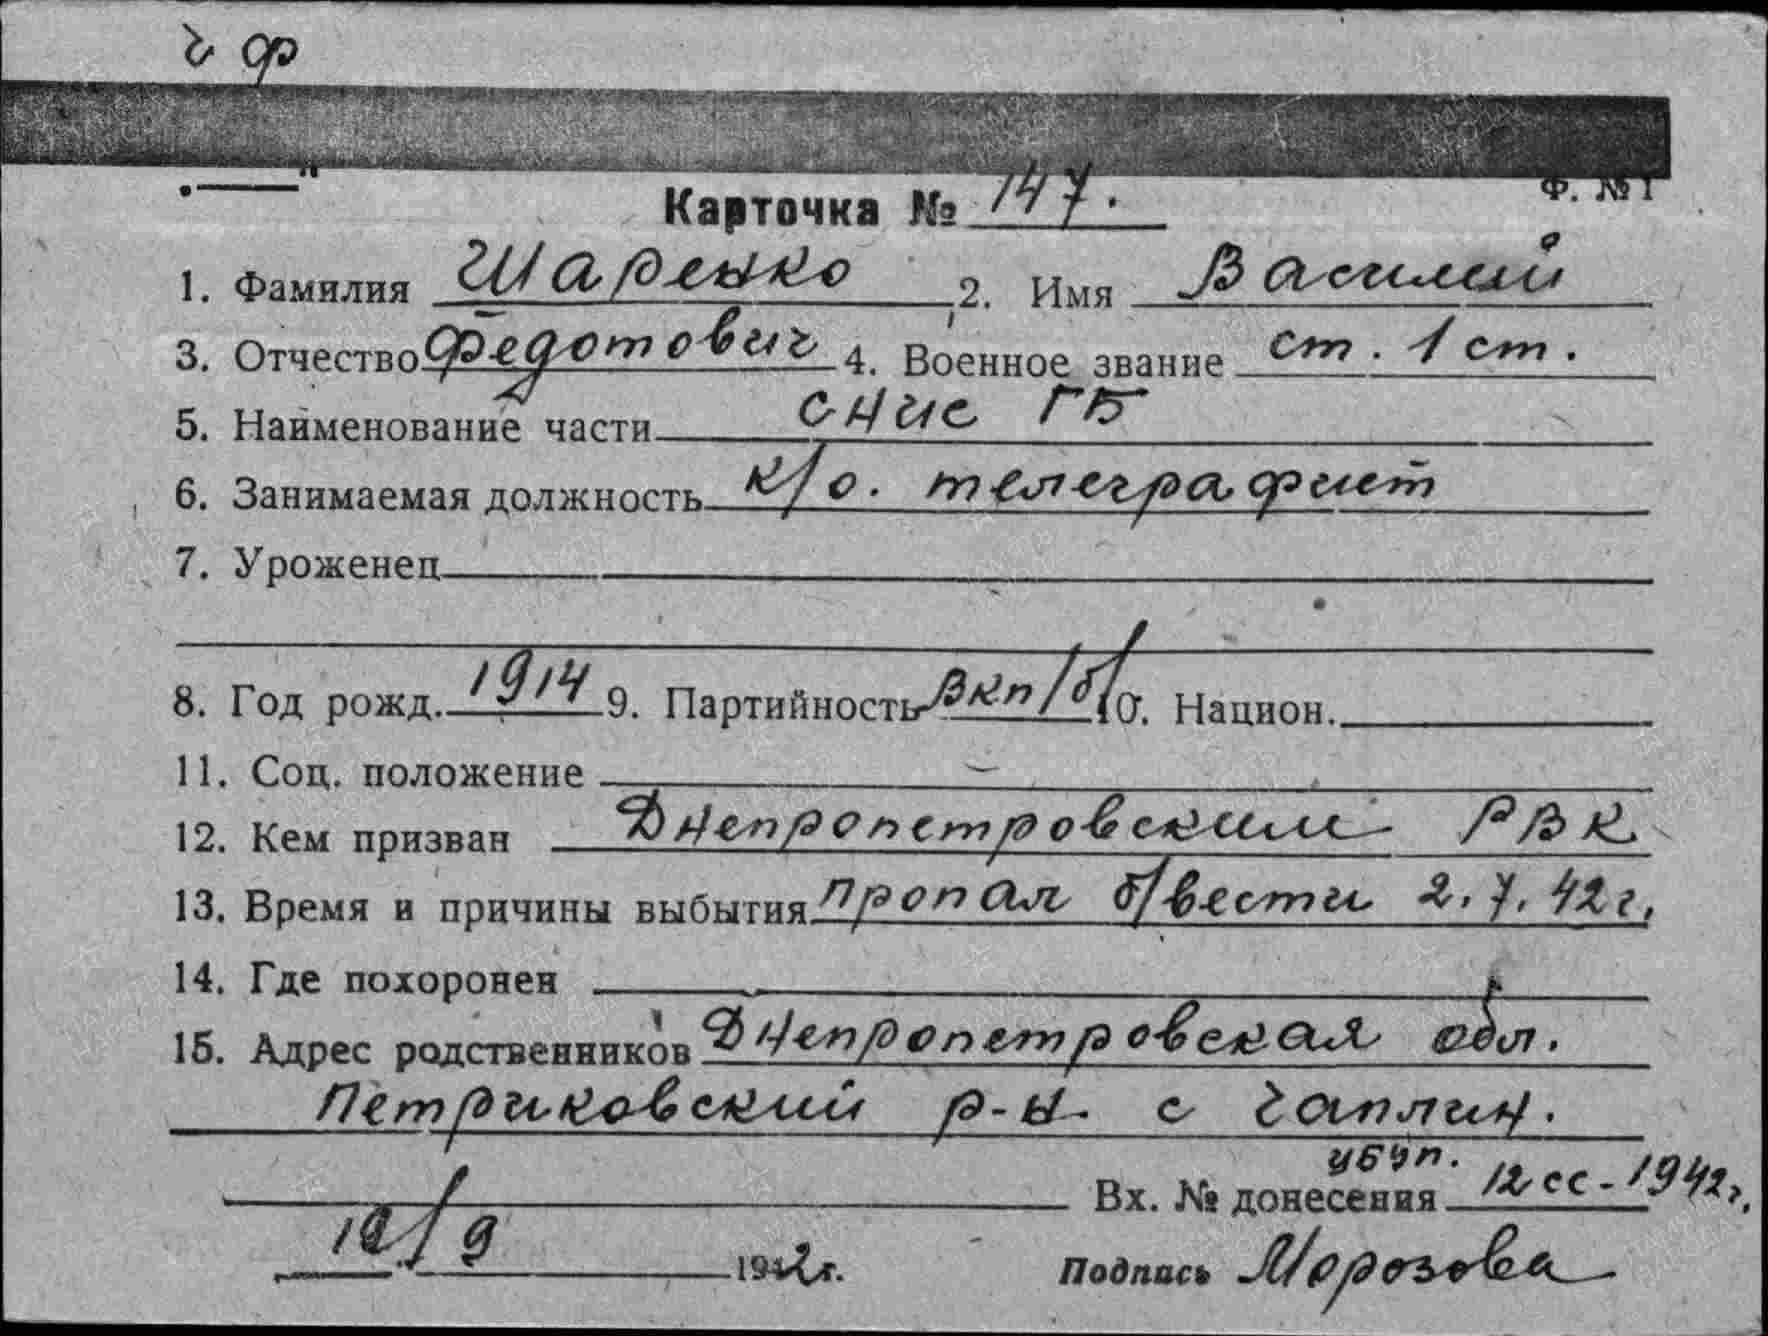 ч ф
Ф. № 1
Карточка № 147.
1. Фамилия Шаренко 2. Имя Василий
3. Отчество Федотович 4. Военное звание ст. 1 ст.
5. Наименование части СНИС ГБ
6. Занимаемая должность к/о. телеграфист
7. Уроженец
8. Год рожд. 1914 9. Партийность ВКП/б/ 10. Национ.
11. Соц. положение —
12. Кем призван Днепропетровским РВК
13. Время и причины выбытия пропал б/вести 2.7.42 г.
14. Где похоронен
15. Адрес родственников Днепропетровская обл.
Петриковский р-н с Чаплин.
Вх. № донесения 12сс-1942г.
/9 1942г. Подпись Морозова